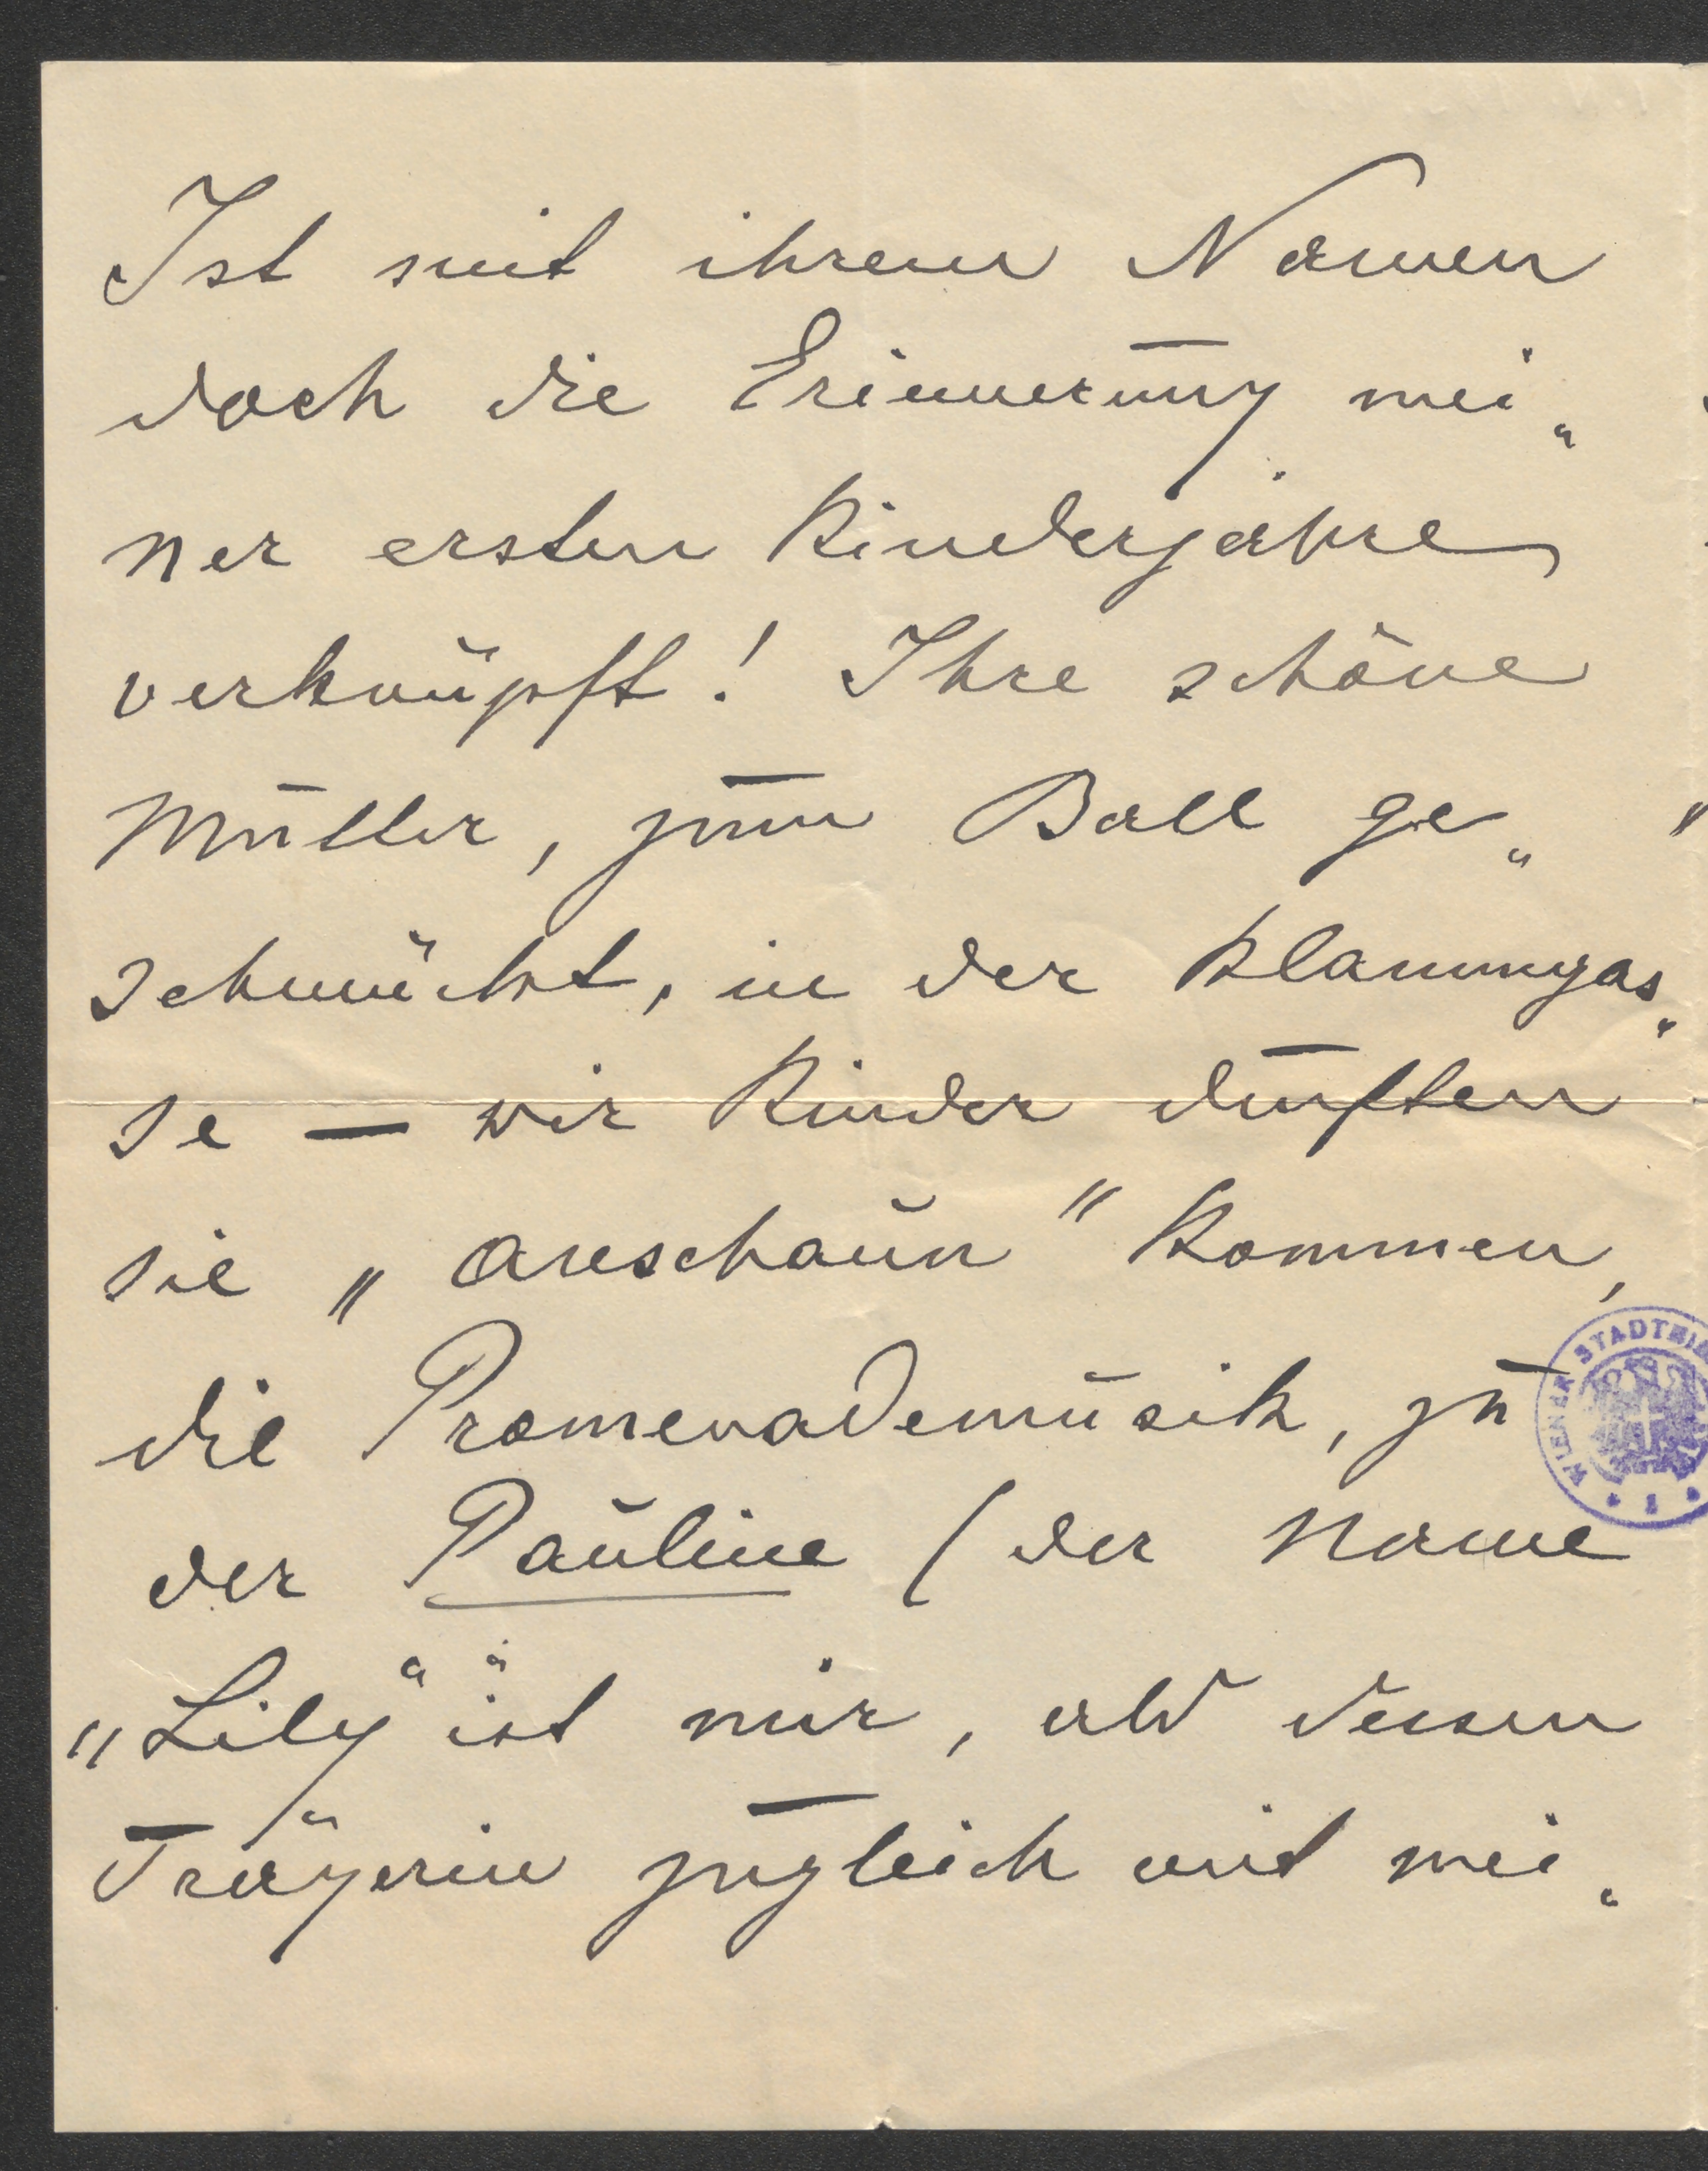 Ist mit ihrem Namen
doch die Erinnerung mei„
ner ersten Kinderjahre
verknüpft! Ihre schöne
Mutter, zum Ball ge„
schmückt, in der Klammgas„
se — wir Kinder durften
sie „anschaun" kommen,
die Promenademusik, zu
der Pauline (der Name
„Lily" ist mir, als dessen
Trägerin zugleich mit mei„
WIENER STADT
1